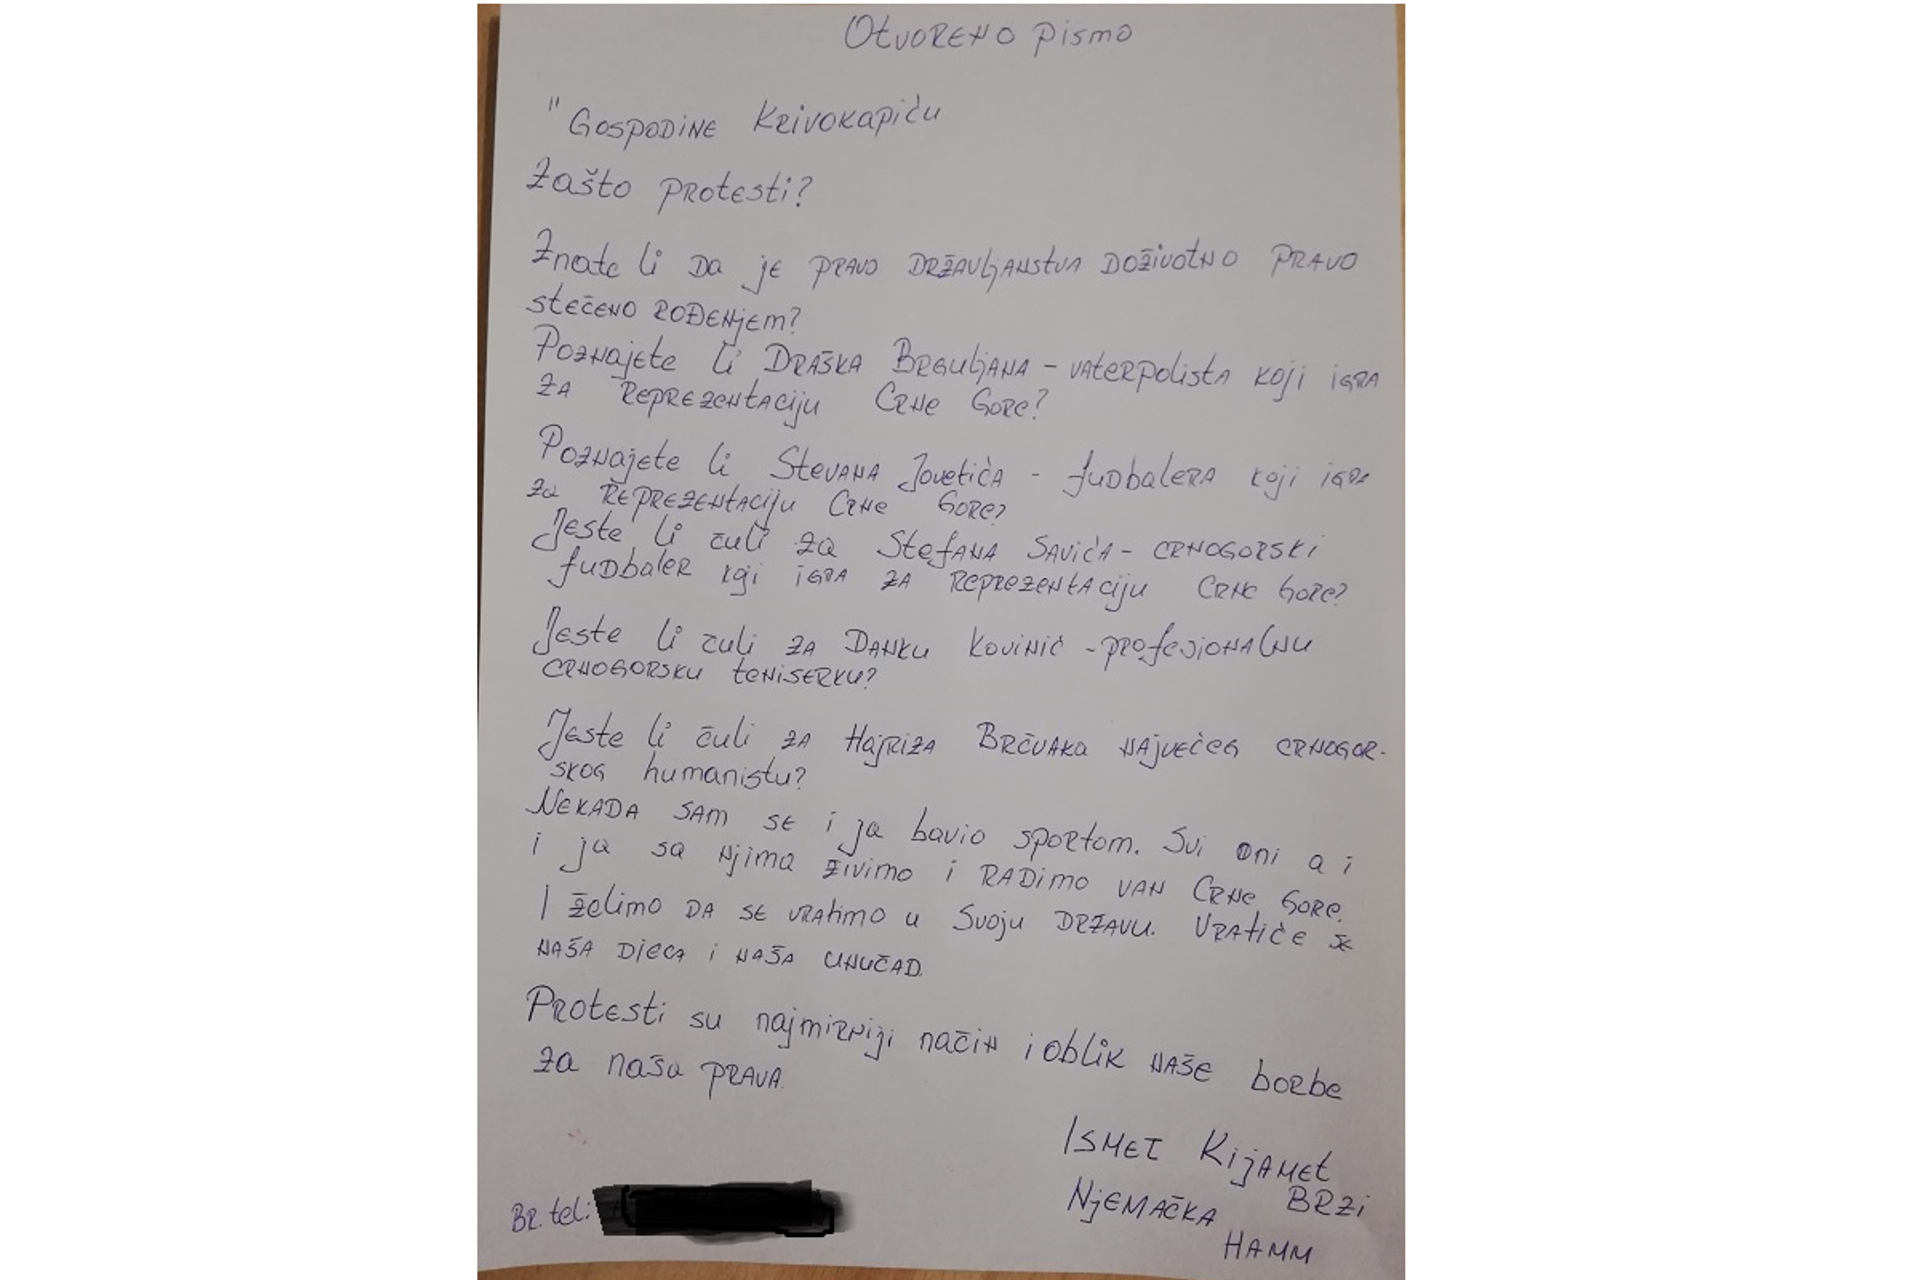 Otvoreno pismo
"Gospodine Krivokapiću
Zašto protesti?
Znate li da je pravo državljanstva doživotno pravo
stečeno rođenjem?
Poznajete li Draška Brguljana - vaterpolista koji igra
za reprezentaciju Crne Gore?
Poznajete li Stevana Jovetića - fudbalera koji igra
za reprezentaciju Crne Gore?
Jeste li čuli za Stefana Savića - crnogorski
fudbaler koji igra za reprezentaciju Crne Gore?
Jeste li čuli za Danku Kovinić - profesionalnu
crnogorsku teniserku?
Jeste li čuli za Hajriza Brčvaka najvećeg crnogor-
skog humanistu?
Nekada sam se i ja bavio sportom. Svi oni a i
i ja sa njima živimo i radimo van Crne Gore.
I želimo da se vratimo u svoju državu. Vratiće se
naša djeca i naša unučad.
Protesti su najmirniji način i oblik naše borbe
za naša prava.
Ismet Kijamet
Njemačka Brzi
Hamm
Br. tel: